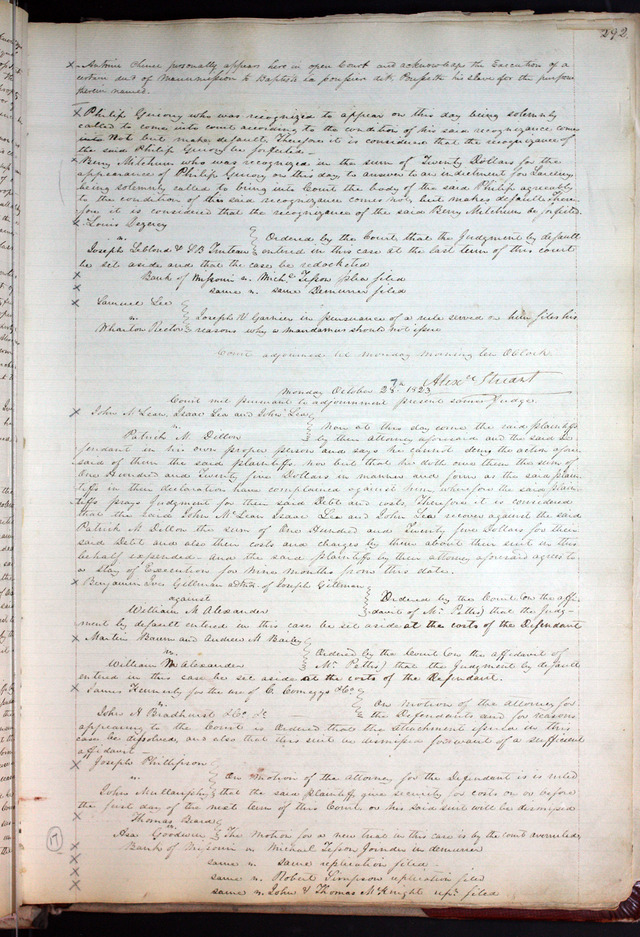 292
Antoine Chenie personally appears here in open Court and acknowledges the Execution of a
certain deed of Manumission to Baptiste his slave for the purpose
therein named.
Philip Guiory who was recognized to appear on this day being solemnly
called to come into court according to the condition of his said recognizance came
into Not but makes default, therefore it is considered that the recognizance of
the said Philip Guiory be forfeited.
Berry Mitchum who was recognized in the sum of Twenty Dollars for the
appearance of Philip Guiory on this day to answer to an indictment for Larceny
being solemnly called to bring into Court the body of the said Philip agreeably
to the condition of the said recognizance comes not, but makes default there
fore it is considered that the recognizance of the said Berry Mitchum be forfeited
Louis
vs.
Ordered by the Court, that the Judgment by default
Joseph Leblond & Truteau entered in this case at the last term of this court
be set aside and that the case be redocketed
Bank of Missouri vs. Tesson plea filed
same vs. same Demurrer filed
Samuel Lee
vs
Joseph V Garnier in pursuance of a rule served on him files his
Wharton Rector reasons why a mandamus should not issue
Court adjourned til monday morning ten Oclock
Alexr. Stuart
Monday October 1823
Court met pursuant to adjournment present same Judge.
John McLean, Isaac Lea and John Lea
vs
Now at this day come the said plaintiffs
Patrick M. Dillon
by their attorney aforesaid and the said de
fendant in his own proper person and says he cannot deny the action afore
said of them the said plaintiffs nor but that he doth owe them the sum of
One Hundred and Twenty five Dollars in manner and form as the said plain
tiffs in their declaration have complained against him, wherefore the said plain
tiffs prays Judgment for their said Debt and costs, Therefore it is considered
that the said John McLean Isaac Lea and John Lea recover against the said
Patrick M. Dillon the sum of One Hundred and Twenty five Dollars for their
said Debt and also their costs and charges by them about their suit in this
behalf expended and the said plaintiffs by their attorney aforesaid agrees to
a stay of Execution for nine months from this date.
Benjamin Ives Gillman admr. of Joseph Gillman
against
Ordered by the Court (on the affi
William M Alexander
davit of Mr. Pettis) that the Judg-
ment by default entered in this case be set aside at the costs of the Defendant
Martin Baum and Andrew M Bailey
vs.
Ordered by the Court (on the affidavit of
William M Alexander
Mr Pettis) that the Judgment by default
entered in this case be set aside at the costs of the Defendant.
James Kennerly for the use of C. Comegys & Co.
vs
On motion of the attorney for
John H Bradhurst &
the Defendants and for reasons
appearing to the Court is Ordered that the attachment issued in this
case be dissolved, and also that this suit be dismissed for want of a sufficient
affidavit
Joseph Phillipson
vs
On motion of the attorney for the Defendant is is ruled
John Mullanphy that the said plaintiff give security for costs on or before
the first day of the next term of this Court or his said suit will be dismissed
Thomas Beard
vs
Asa Goodwin The Motion for a new trial in this case is by the court overruled,
Bank of Missouri vs Michael Tesson Joinder in demurrer
same vs. same replication filed
same vs. Robert Simpson replication filed
same vs. John & Thomas McKnight repn. filed
17